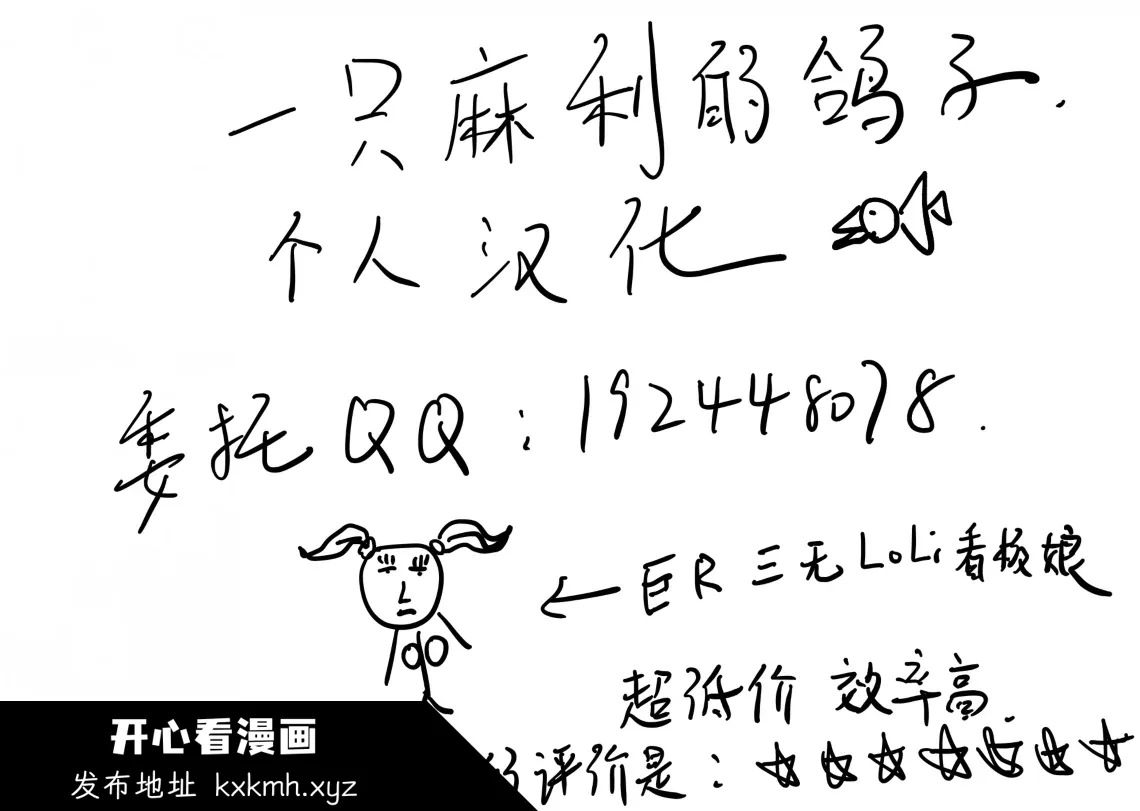 一只麻利的鸽子.
个人汉化
委托QQ:1924448078.
← ER 三无LoLi看板娘
超低价 效率高.
的评价是:☆☆☆☆☆☆☆
开心看漫画
发布地址 kxkmh.xyz